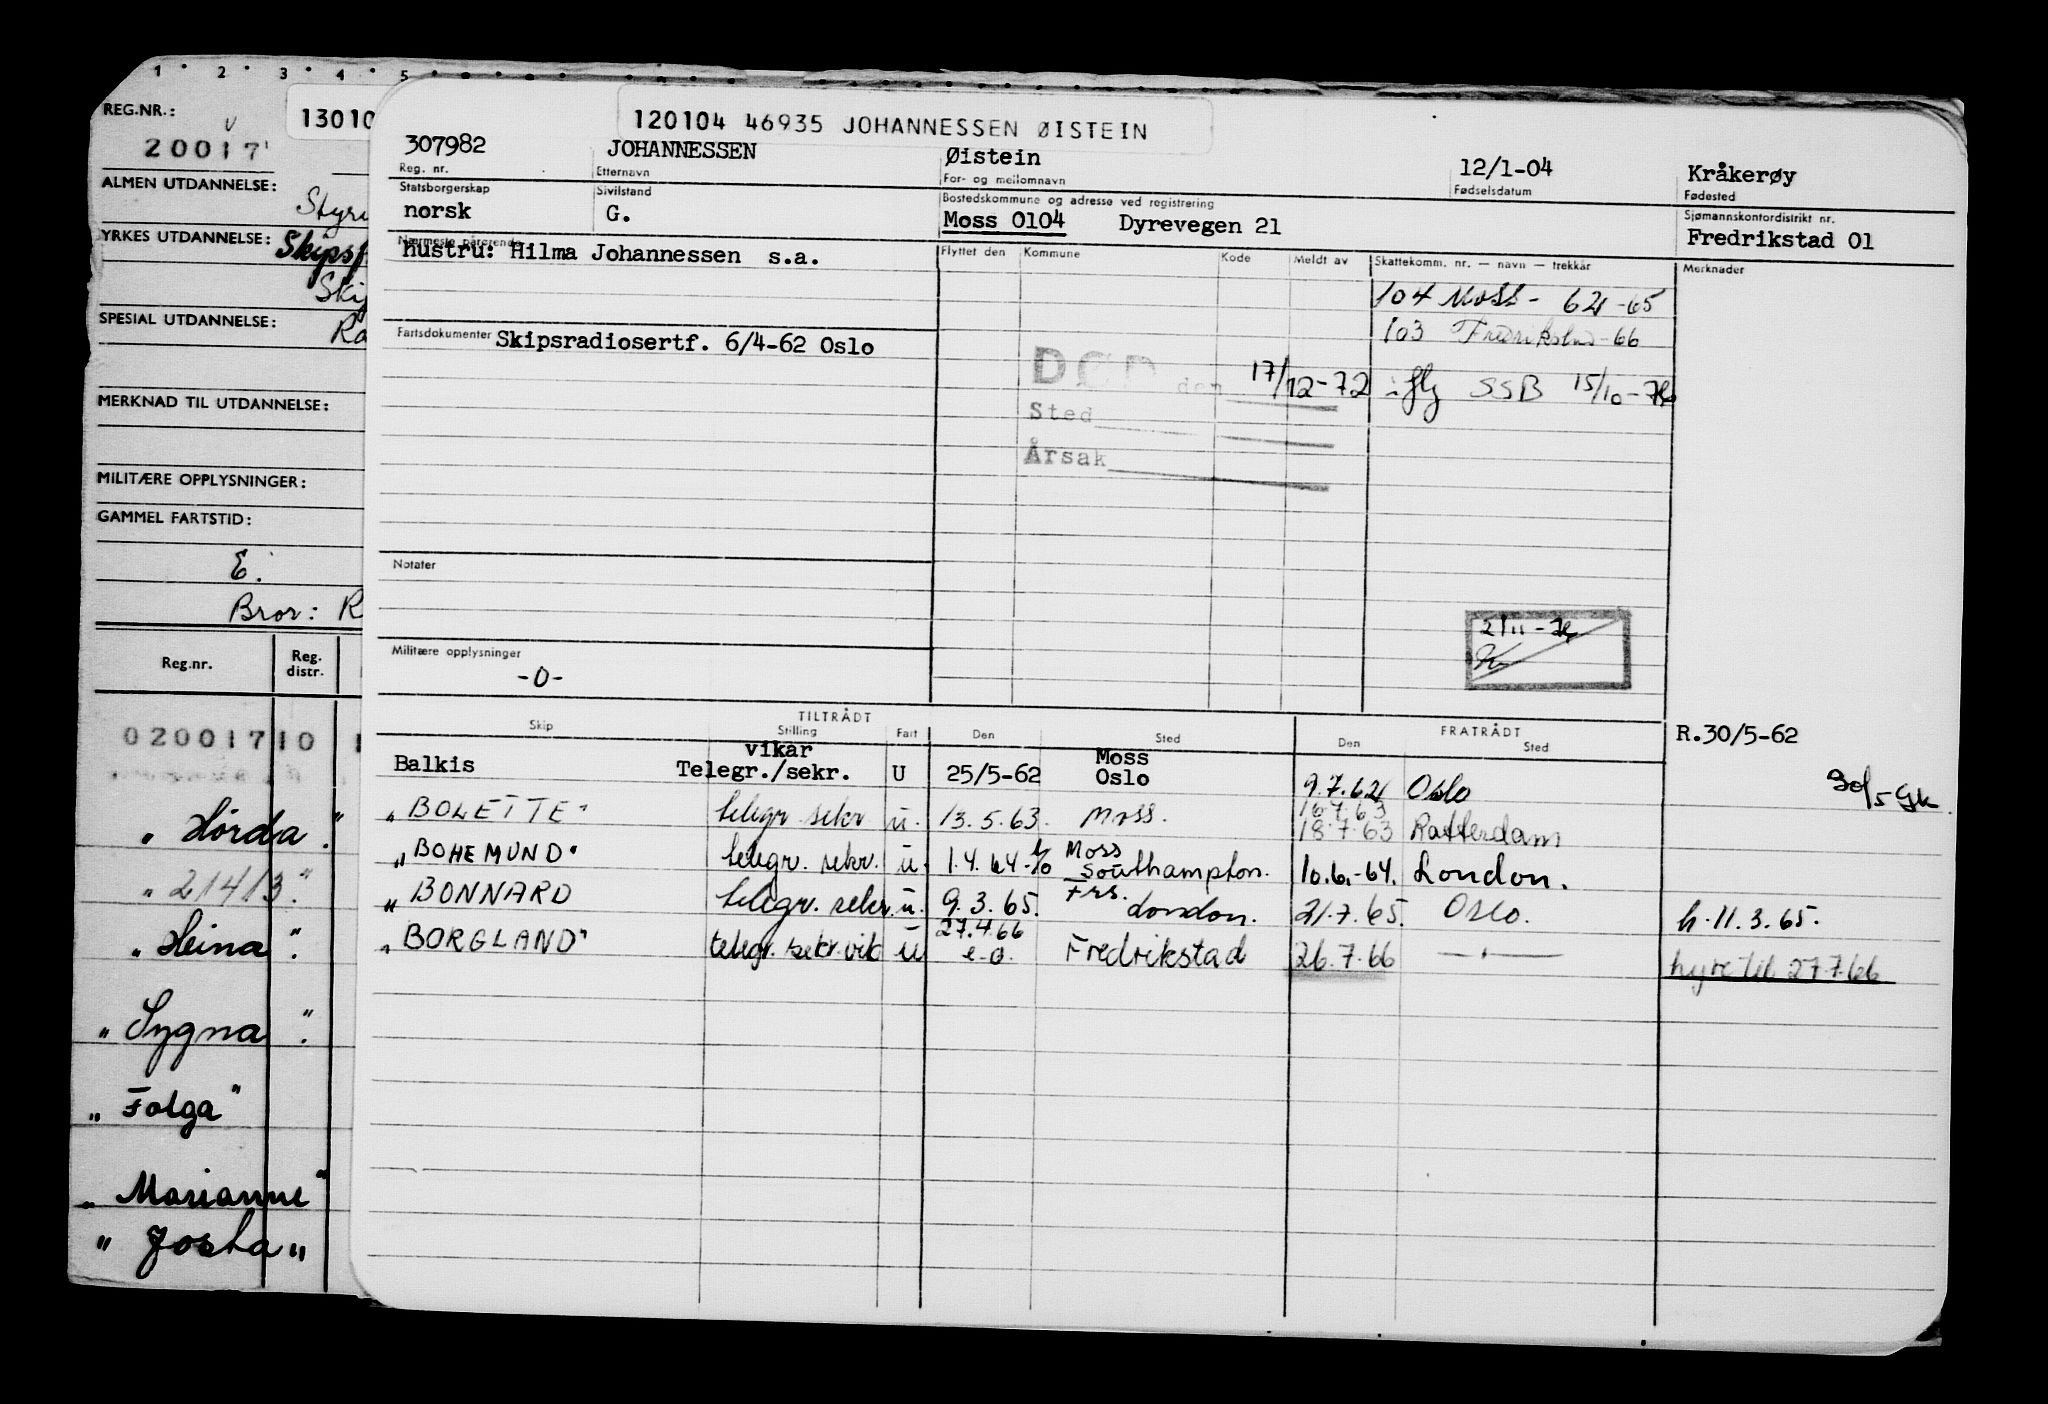 1 2 3 4 5
REG.NR.:
13010
20017
ALMEN UTDANNELSE:
YRKES UTDANNELSE:
SPESIAL UTDANNELSE:
MERKNAD TIL UTDANNELSE:
MILITÆRE OPPLYSNINGER:
GAMMEL FARTSTID:
E.
Bror: R
Reg.nr. Reg. distr.
02001710
„Hörda"
„21413"
„Heina"
„Sygna"
„Folga"
„Marianne"
„Josta„
120104 46935 JOHANNESSEN ØISTEIN
307982 JOHANNESSEN Øistein 12/1-04 Kråkerøy
Reg. nr. Etternavn For- og mellomnavn Fødselsdatum Fødested
Statsborgerskap Sivilstand Bostedskommune og adresse ved registrering Sjømannskontordistrikt nr.
norsk G. Moss 0104 Dyrevegen 21 Fredrikstad 01
Nærmeste pårørende Flyttet den Kommune Kode Meldt av Skattekomm. nr. — navn — trekkår Merknader
hustru: Hilma Johannessen s.a.
104 Moss - 62-65
103 Fredrikstad-66
Fartsdokumenter Skipsradiosertf. 6/4-62 Oslo
DØD den 17/12-72 : flg SSB 15/10-74
Sted
Årsak
Notater
2/11-74
Militære opplysninger
-0-
TILTRÅDT FRATRÅDT
Skip Stilling Fart Den Sted Den Sted
R.30/5-62
Balkis vikar Telegr./sekr. U 25/5-62 Moss Oslo 9.7.62 Oslo 30/5 Gk.
„BOLETTE" telegr. sekr u. 13.5.63. Moss. 16.7.63 18.7.63 Rotterdam
„BOHEMUND" telegr. sekr. u. 1.4.64 Moss Southampton. 10.6.-64. London.
„BONNARD telegr. sekr. u. 9.3.65. Frs. London. 21.7.65. Oslo. h. 11.3.65.
„BORGLAND" telegr. sekr. vik u 27.4.66 e.o. Fredrikstad 26.7.66 —"— hyre til 27.7.66